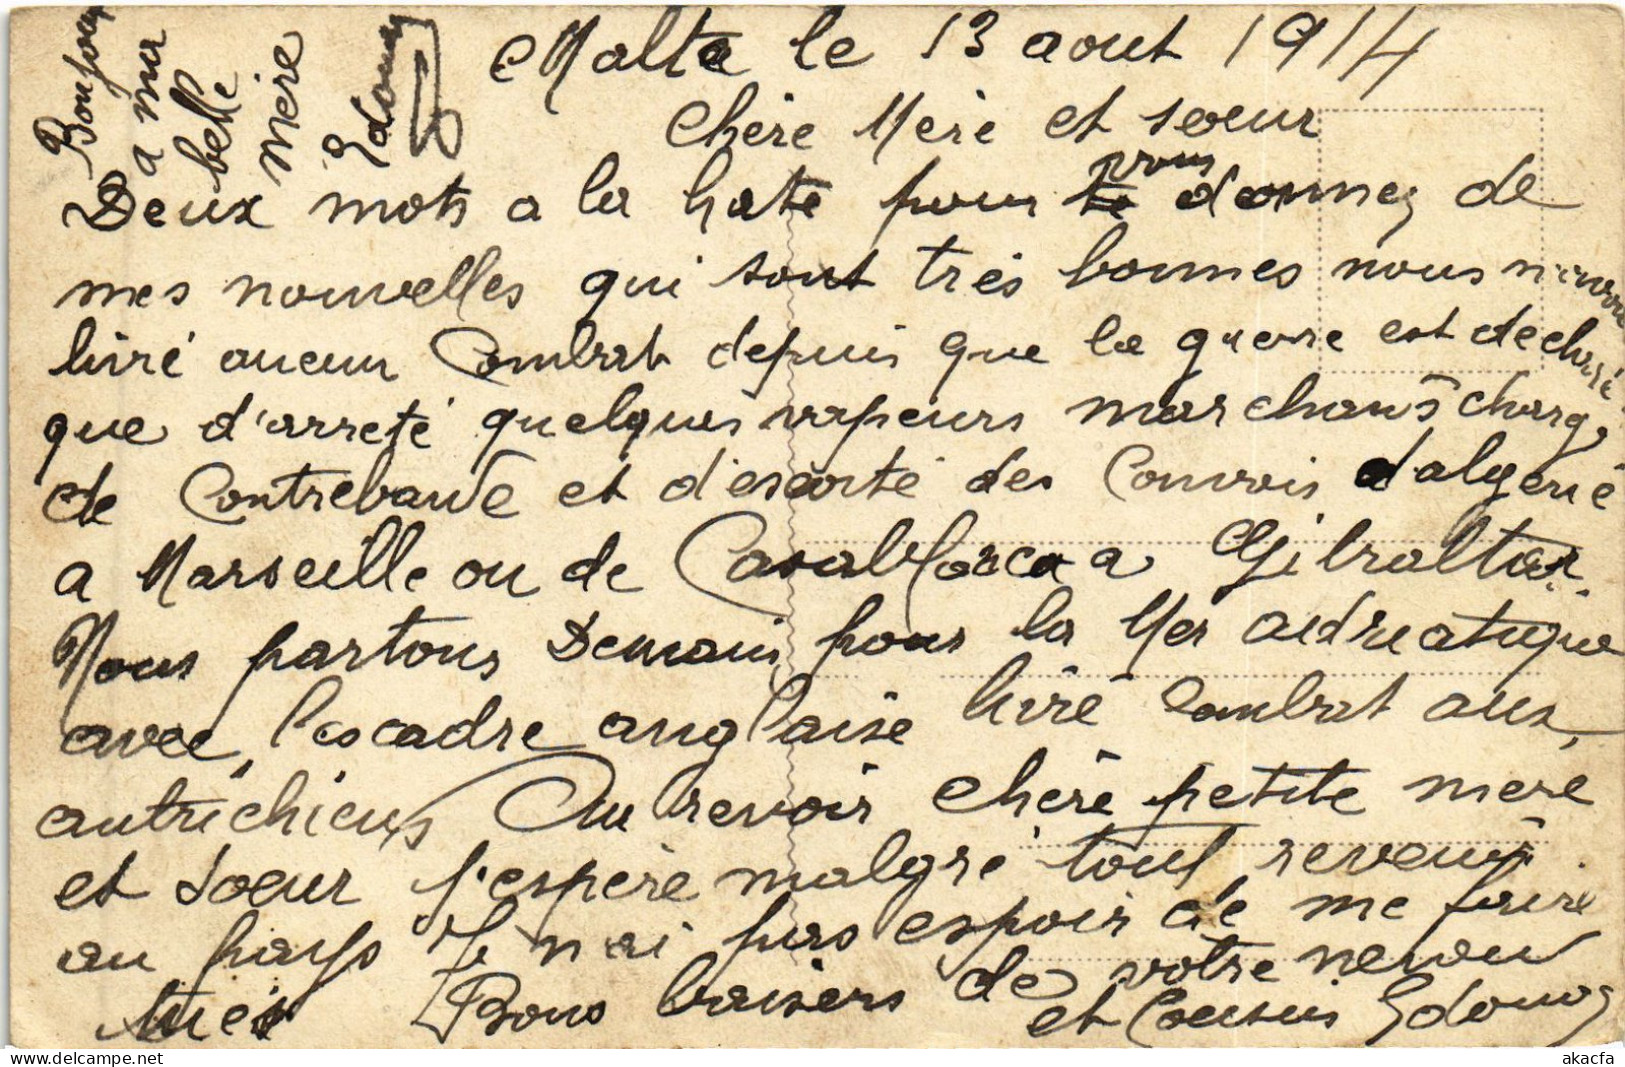 Malta le 13 aout 1914
Chère Mère et soeur
Deux mots a la hate pour vous donnez de
mes nouvelles qui sont très bonnes nous n'avons
livré aucun Combat depuis que la guerre est dechiré
que d'arreté quelques vapeurs marchans charg
de Contrebande et d'escorté des Convois d'algerie
a Marseille ou de Casablanca a Gibraltar.
Nous partons Demain pour la Mer adriatique
avec l'escadre anglaise livré Combat aux
autrichiens Au revoir chère petite mere
et soeur j'espère malgré tout revenir
au pays Je n'ai pas espoir de me faire
tués Bons baisers de votre neveu
et Cousin Edouard
Bonjour
a ma
belle
mère
Edouard
akacfa